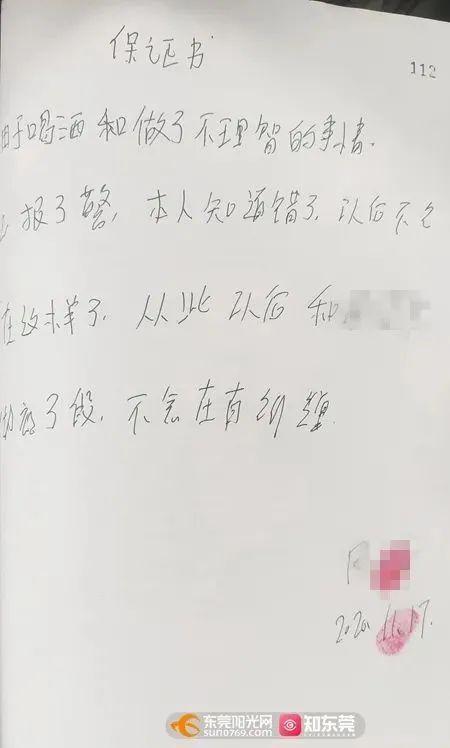 保证书
112
由于喝酒和做了不理智的事情.
报了警,本人知道错了,以后不会
在这样了,从此以后和
彻底了段,不会在有纠缠
2020.11.17.
东莞阳光网 知东莞
sun0769.com